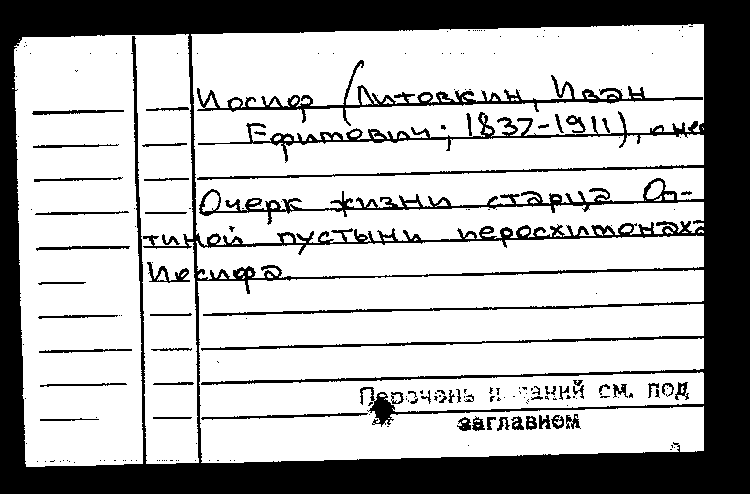 Иосиф (Литовкин, Иван
Ефимович; 1837-1911), о нем
Очерк жизни старца Оп-
тиной пустыни иеросхимонаха
Иосифа.
Перечень изданий см. под
заглавием